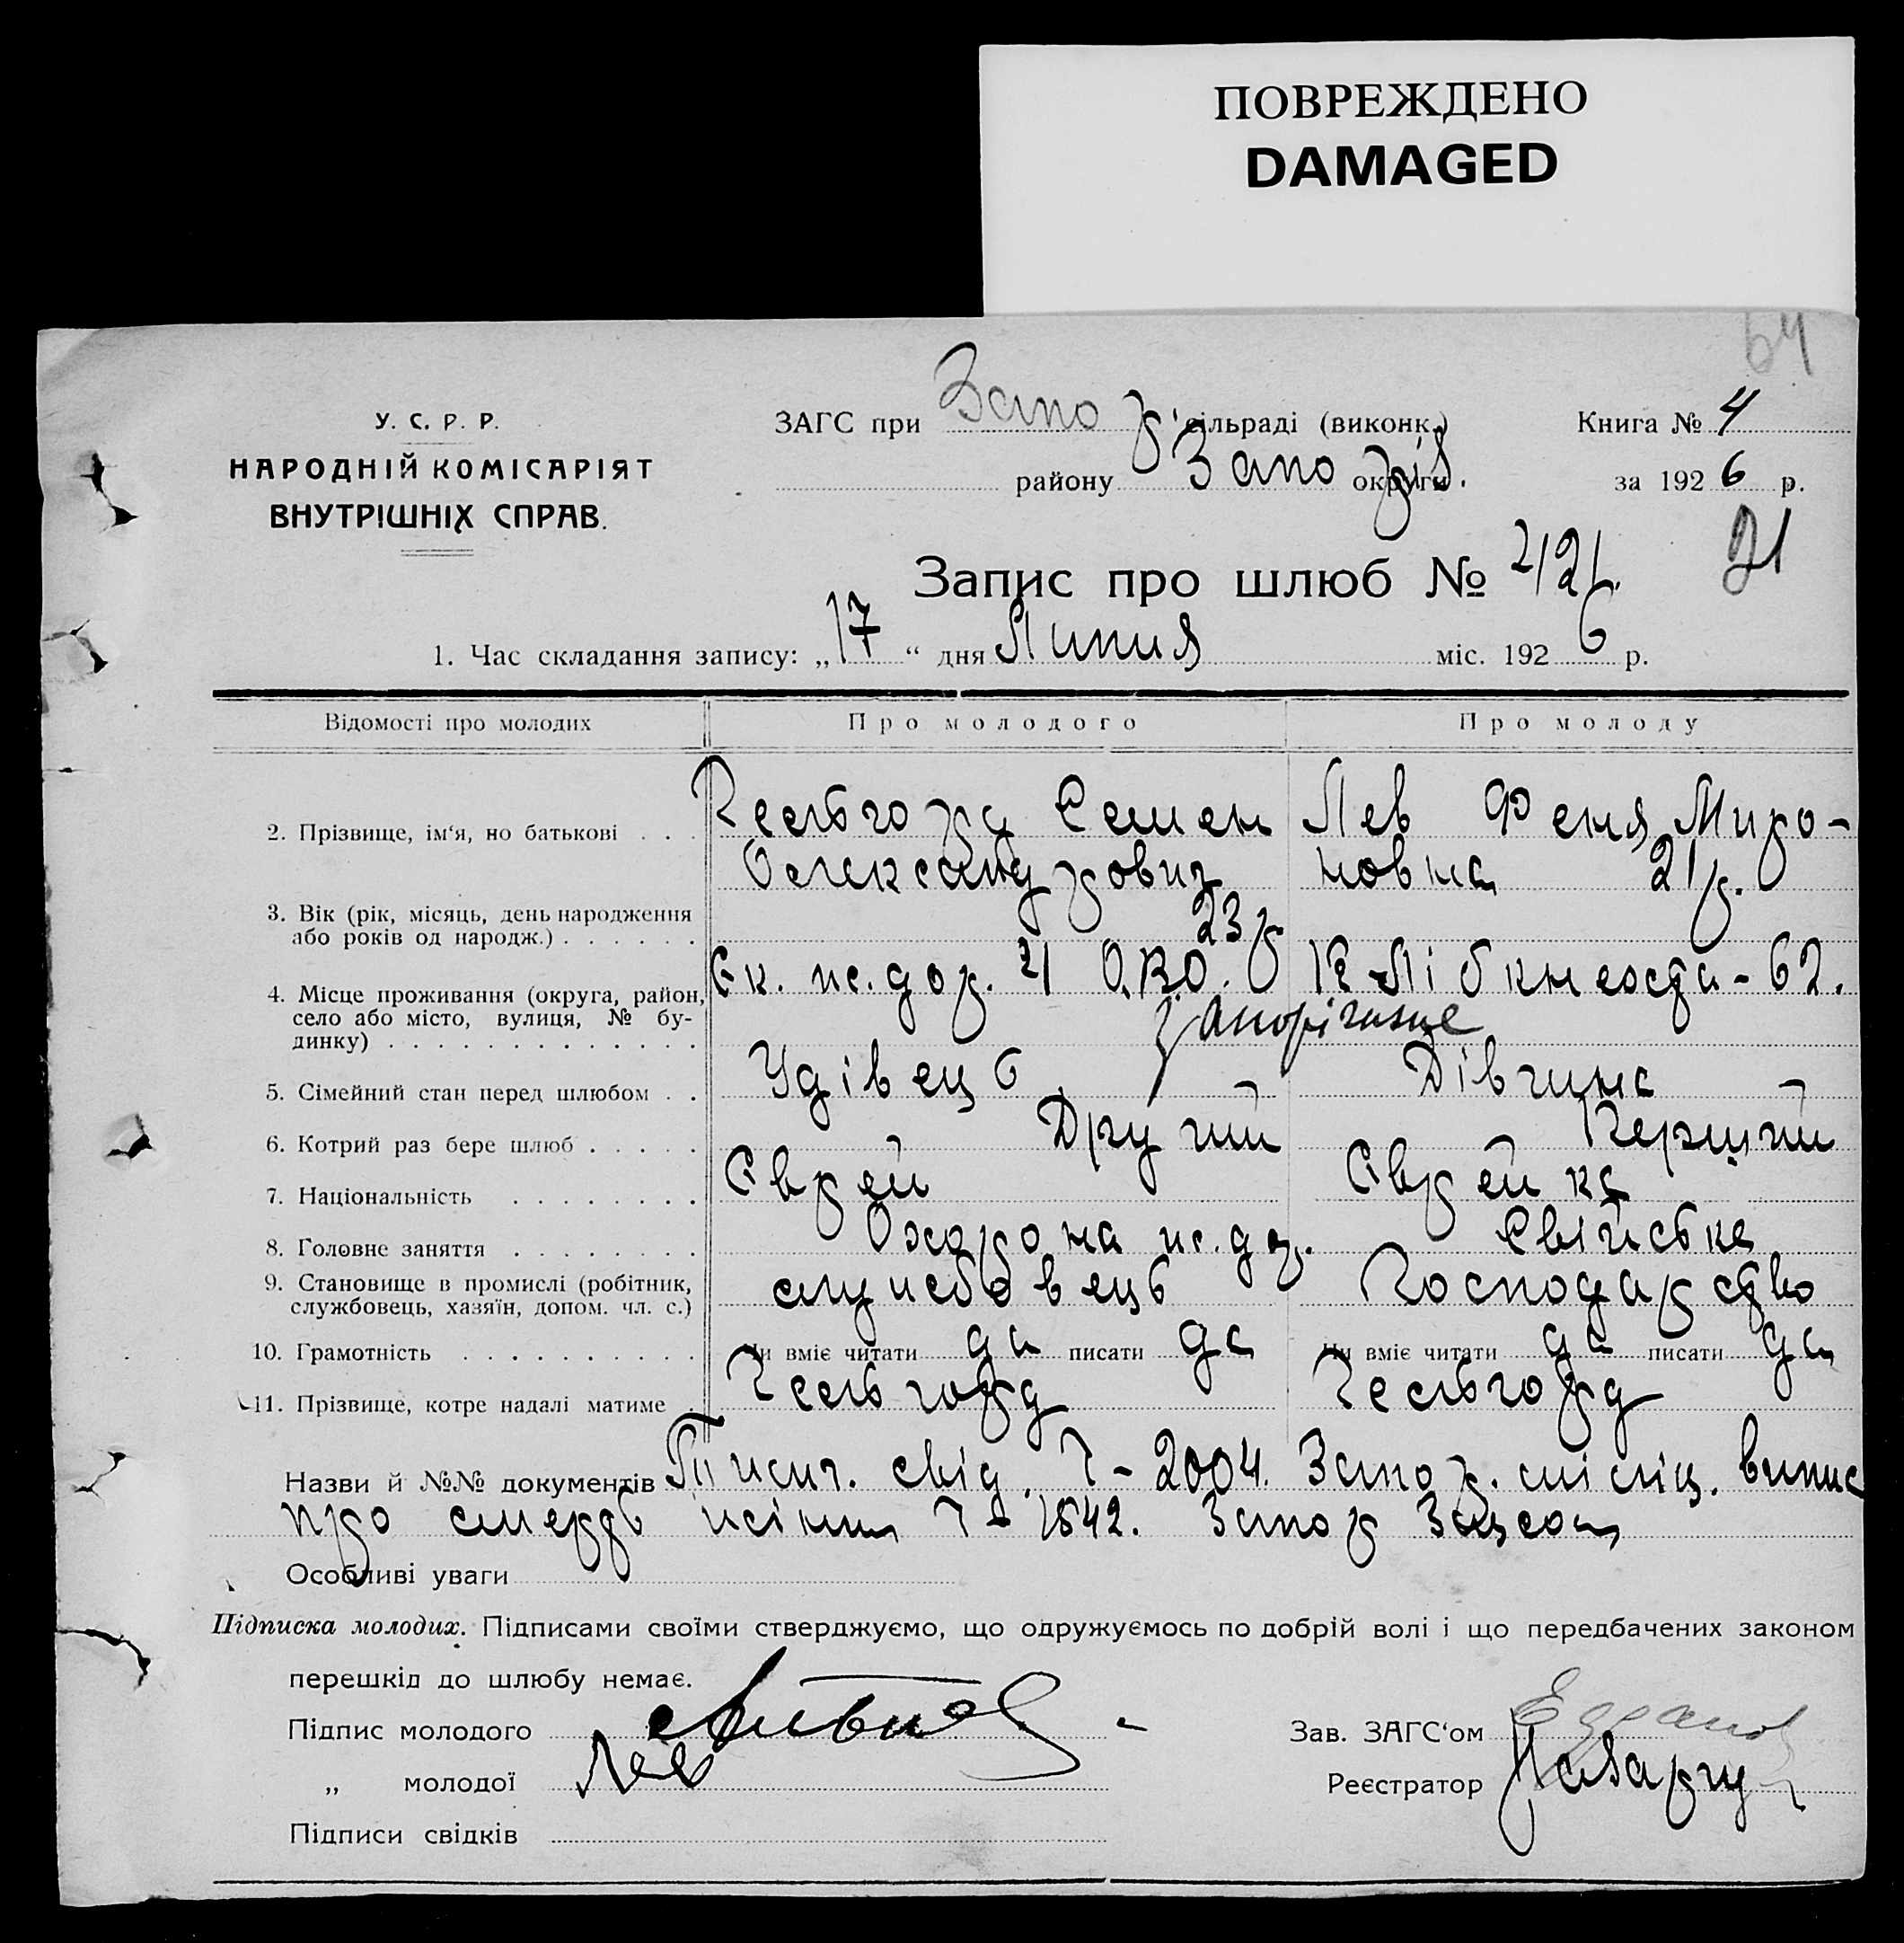 ПОВРЕЖДЕНО
DAMAGED
64
У. С. Р. Р.
НАРОДНІЙ КОМІСАРІЯТ
ВНУТРІШНІХ СПРАВ.
ЗАГС при Запор сільраді (виконк.)
району Запоріз. округи
Книга № 4
за 1926 р.
Запис про шлюб № 2/21. 21
1. Час складання запису: „17“ дня Липня міс. 1926 р.
Відомості про молодих Про молодого Про молоду
2. Прізвище, ім‘я, по батькові . . . Гельгорд Семен Лев Феня Миро-
Олександрович новна 21 р.
3. Вік (рік, місяць, день народження 23 р.
або років од народж.) . . . . . .
4. Місце проживання (округа, район, Єк. ж. дор. 21 О.В.О. К Лібкнехта - 62.
село або місто, вулиця, № бу- Запоріжжє
динку) . . . . . . . . . . . . .
5. Сімейний стан перед шлюбом . . Удівець Дівчина
6. Котрий раз бере шлюб . . . . . Другий Перший
7. Національність . . . . . . . . Єврей Єврейка
8. Головне заняття . . . . . . . . Охорона ж. дор. Свійське
9. Становище в промислі (робітник, службовець Господарство
службовець, хазяїн, допом. чл. с.)
10. Грамотність . . . . . . . . . . Чи вміє читати да писати да Чи вміє читати да писати да
11. Прізвище, котре надалі матиме . Гельгорд Гельгорд
Назви й №№ документів свід. Ч - 2004. Запор. міліц. випис
про смерть жінки Ч - 1542. Запор Загсом
Особливі уваги
Підписка молодих. Підписами своїми стверджуємо, що одружуємось по добрій волі і що передбачених законом
перешкід до шлюбу немає.
Підпис молодого
Зав. ЗАГС‘ом
„ молодої Лев
Реєстратор
Підписи свідків